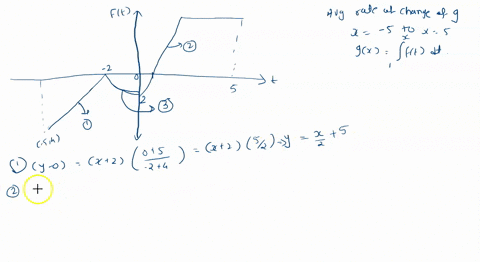 F(t)
Avg rate of change of g
x = -5 to x = 5
g(x) = ∫₁ˣ f(t) dt.
②
-2
0
t
5
2
③
①
① (y-0) = (x+2) (0+5 / -2+4) = (x+2) (5/2) → y = x/2 + 5
② +